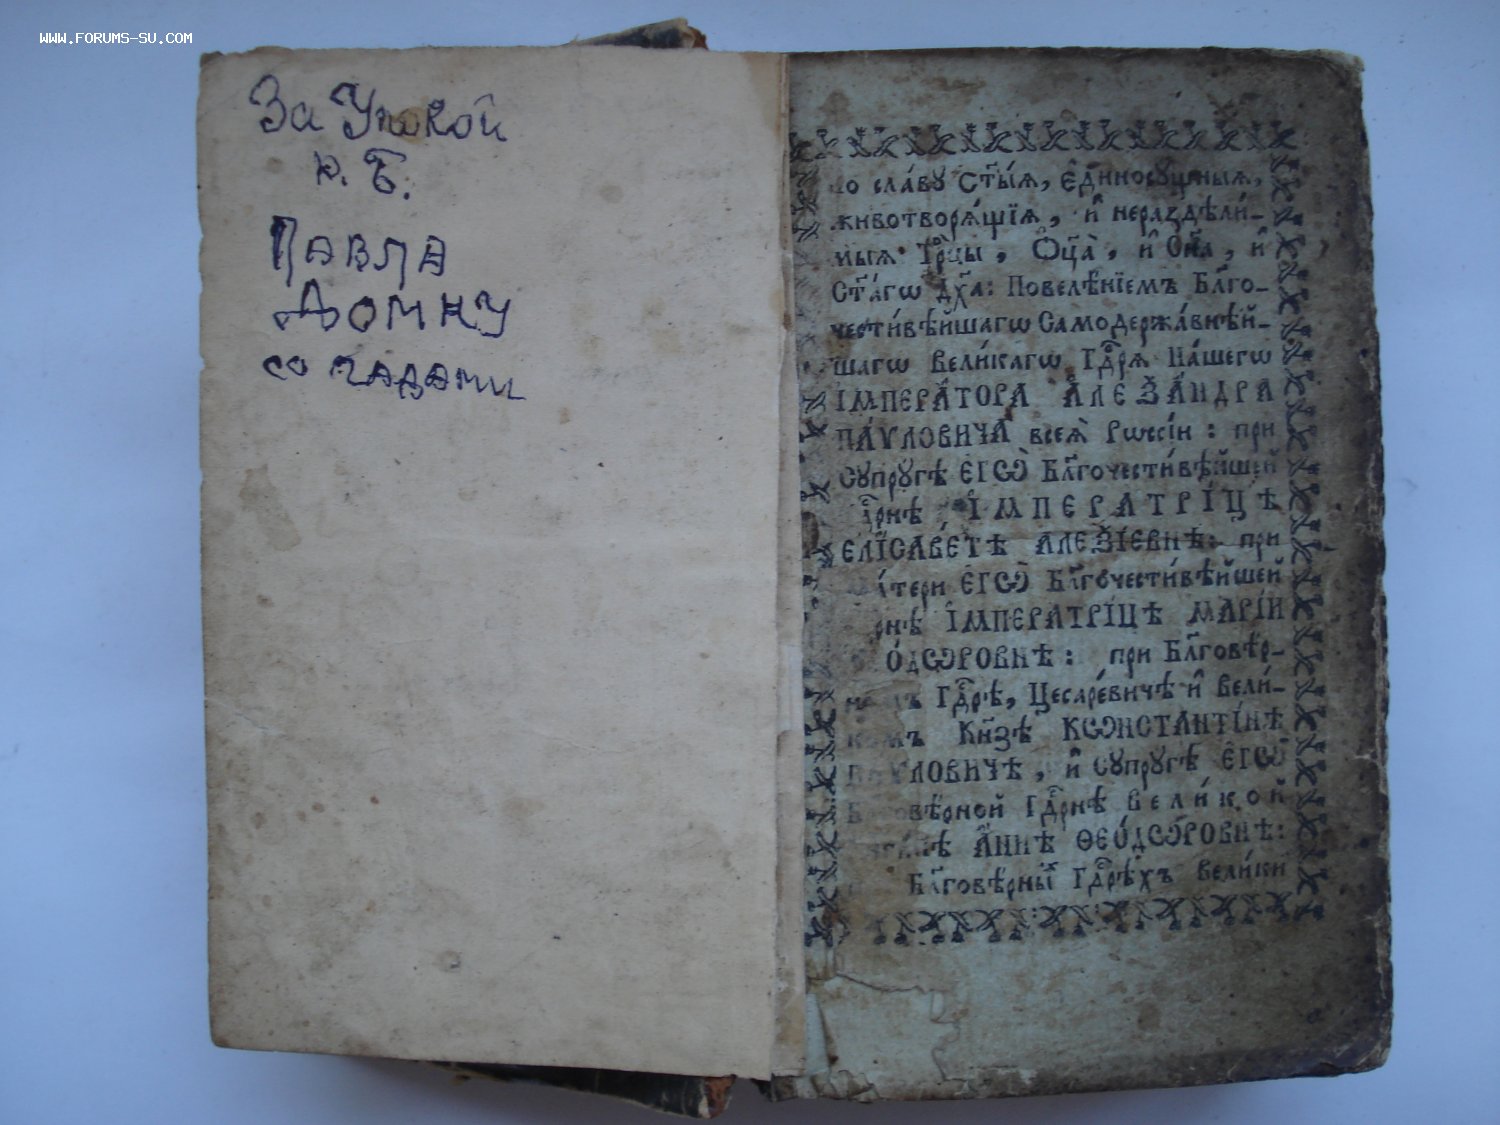 WWW.FORUMS-SU.COM
За Упокой
р. Б.
Павла
Домну
со чадами
во сла́ву Ст҃ы́ѧ, Є҆диносꙋ́щныѧ,
животворѧ́щїѧ, и҆ нераздѣли́-
мыѧ Трⷪ҇цы, Ѻ҆ц҃а̀, и҆ Сн҃а, и҆
Ст҃а́гѡ дх҃а: Повелѣ́нїемъ Бл҃го-
чести́вѣйшагѡ Самодержа́внѣй-
шагѡ Вели́кагѡ Гдⷭ҇рѧ На́шегѡ
І҆МПЕРА́ТОРА А҆ЛЕѮА́НДРА
ПА́ѴЛОВИЧА всеѧ̀ Рѡссі́и : при
Сꙋпрꙋ́гѣ ЄГѠ̀ Бл҃гочести́вѣйшей
Гдⷭ҇рнѣ І҆МПЕРАТРІ́ЦѢ
ЄЛІСАВЕ́ТѢ АЛЕѮІ́ЕВНѢ: при
Ма́тери ЄГѠ̀ Бл҃гочести́вѣйшей
Гдⷭ҇рнѣ І҆МПЕРАТРІ́ЦѢ МАРІ́И
Ѳео́дѡровнѣ : при Бл҃говѣ́р-
номъ Гдⷭ҇рѣ, Цесаре́вичѣ и҆ Вели́-
комъ Кн҃зѣ КѠНСТАНТІ́НѢ
ПА́ѴЛОВИЧѢ, и҆ Сꙋпрꙋ́гѣ ЄГѠ̀
Бл҃говѣ́рной Гдⷭ҇рнѣ Вели́кой
Кнѧги́нѣ А҆́ННѢ ѲЕО́ДѠРОВНѢ:
Бл҃говѣ́рныⷯ Гдⷭ҇рѣхъ Вели́ки